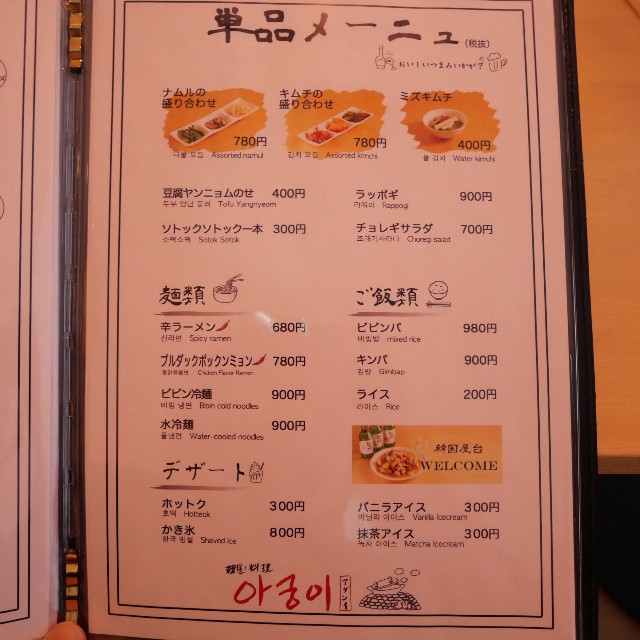 単品メーニュ(税抜)
おいしいつまみいかが?
ナムルの
盛り合わせ
780円
나물 모듬 Assorted namul
キムチの
盛り合わせ
780円
김치 모듬 Assorted kimchi
ミズキムチ
400円
물 김치 Water kimchi
豆腐ヤンニョムのせ 400円
Tofu Yangnyeom
ラッポギ 900円
라뽂이 Rappogi
ソトックソトック一本 300円
소떡소떡 Sotok Sotok
チョレギサラダ 700円
쵸레기사라다 Choregi salad
麺類
ご飯類
辛ラーメン 680円
신라면 Spicy ramen
ビビンバ 980円
비빔밥 mixed rice
ブルダックボックンミョン 780円
불닭볶음면 Chicken Flavor Ramen
キンパ 900円
김밥 Gimbap
ビビン冷麺 900円
비빔 냉면 Bibin cold noodles
ライス 200円
라이스 Rice
水冷麺 900円
물냉면 Water-cooled noodles
韓国屋台
WELCOME
デザート
ホットク 300円
호떡 Hotteok
バニラアイス 300円
바닐라 아이스 Vanilla Icecream
かき氷 800円
한국 빙설 Shaved ice
抹茶アイス 300円
녹차 아이스 Matcha Icecream
料理
아궁이